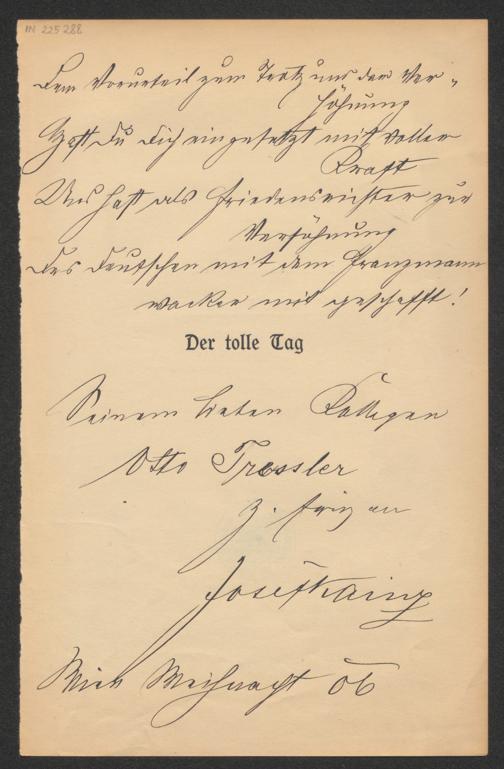 IN 225288
Dem Vorurteil zum Trotz und der Ver-
höhnung
Hast Du Dich eingesetzt mit voller
Kraft
Und hast als Friedensrichter zur
Versöhnung
des Deutschen mit dem Franzmann
wacker mit geschafft!
Der tolle Tag
Seinem lieben Kollegen
Otto Tressler
Josef Kainz
Wien Weihnacht 06